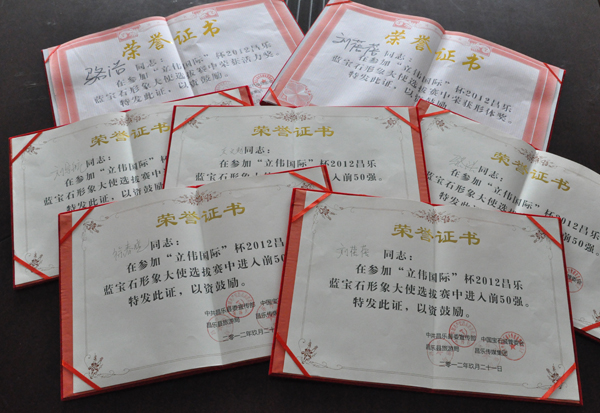 荣誉证书
同志：
在参加“立伟国际”杯2012昌乐
蓝宝石形象大使选拔赛中荣获活力奖。
特发此证，以资鼓励。
荣誉证书
刘蓓蓓 同志：
在参加“立伟国际”杯2012昌乐
蓝宝石形象大使选拔赛中荣获形体奖。
特发此证，以资鼓励
荣誉证书
同志：
在参加“立伟国际”
蓝宝石形象大使选拔
特发此证，以资鼓
荣誉证书
同志：
在参加“立伟国际”杯2012昌乐
蓝宝石形象大使选拔赛中进入前50强。
荣誉证书
同志：
在参加“立伟国际”杯2012昌乐
进入前50强。
荣誉证书
同志：
在参加“立伟国际”杯2012昌乐
蓝宝石形象大使选拔赛中进入前50强。
特发此证，以资鼓励。
中共昌乐县委宣传部
昌乐县旅游局
二〇一二年玖月二十一
荣誉证书
刘蓓蓓 同志：
在参加“立伟国际”杯2012昌乐
蓝宝石形象大使选拔赛中进入前50强。
特发此证，以资鼓励。
中共昌乐县委宣传部
昌乐县旅游局 昌乐传媒集团
二〇一二年玖月二十一日